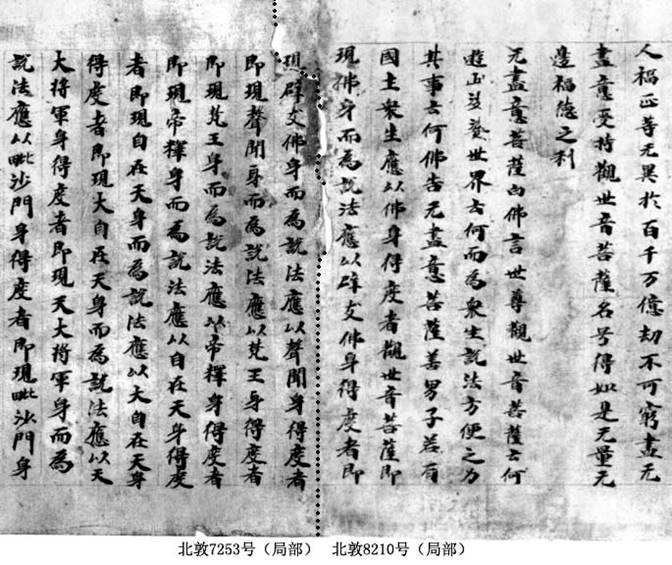 人福正等无異於百千万億劫不可窮盡无
盡意受持觀世音菩薩名号得如是无量无
邊福德之利
无盡意菩薩白佛言世尊觀世音菩薩云何
遊此娑婆世界云何而為衆生說法方便之力
其事云何佛告无盡意菩薩善男子若有
國土衆生應以佛身得度者觀世音菩薩即
現佛身而為說法應以辟支佛身得度者即
現辟支佛身而為說法應以聲聞身得度者
即現聲聞身而為說法應以梵王身得度者
即現梵王身而為說法應以帝釋身得度者
即現帝釋身而為說法應以自在天身得度
者即現自在天身而為說法應以大自在天身
得度者即現大自在天身而為說法應以天
大將軍身得度者即現天大將軍身而為
說法應以毗沙門身得度者即現毗沙門身
北敦7253号（局部） 北敦8210号（局部）